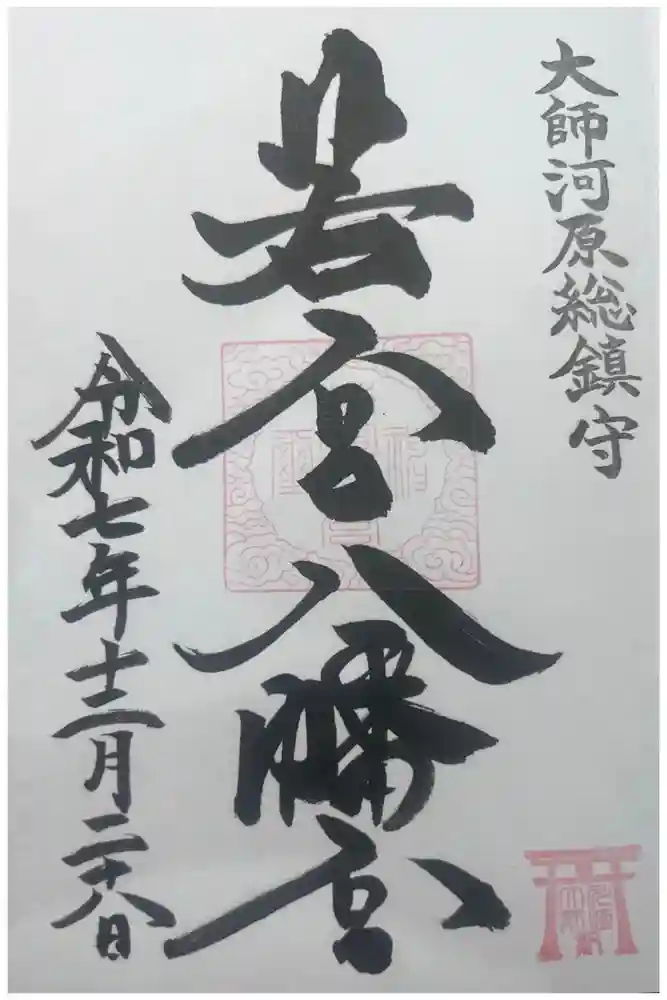 大師河原総鎮守
若宮八幡宮
令和七年十二月二十八日